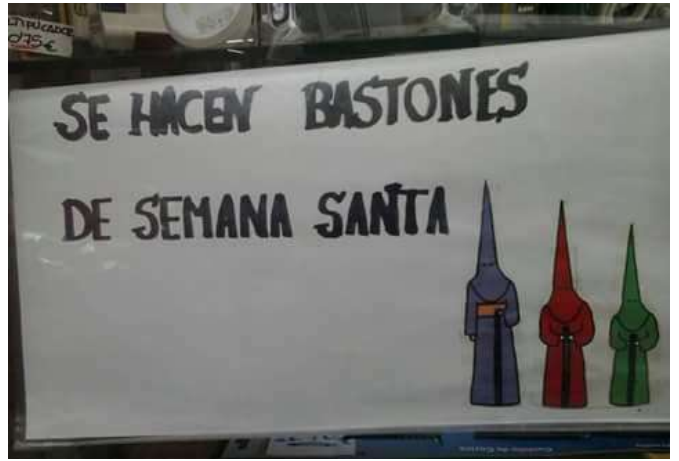 SE HACEN BASTONES
DE SEMANA SANTA